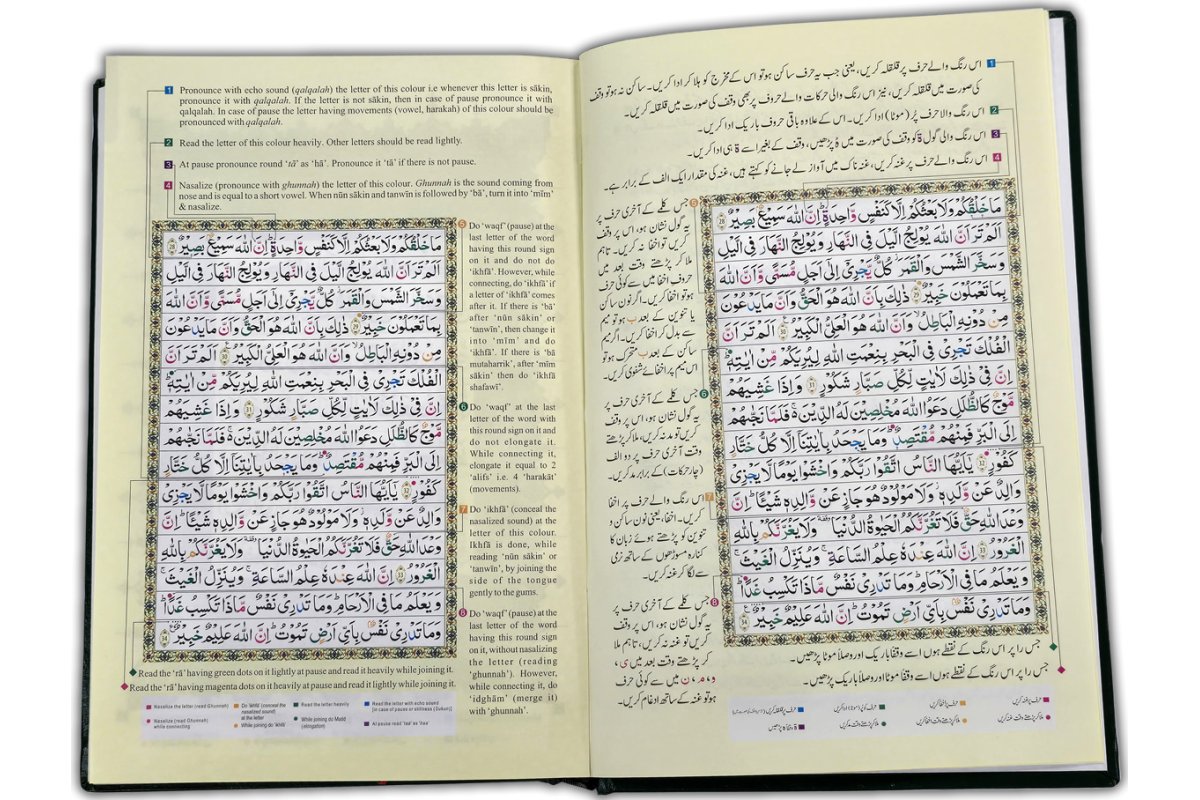 1 Pronounce with echo sound (qalqalah) the letter of this colour i.e whenever this letter is sākin,
pronounce it with qalqalah. If the letter is not sākin, then in case of pause pronounce it with
qalqalah. In case of pause the letter having movements (vowel, harakah) of this colour should be
pronounced with qalqalah.
2 Read the letter of this colour heavily. Other letters should be read lightly.
3 At pause pronounce round ‘tā’ as ‘hā’. Pronounce it ‘tā’ if there is not pause.
4 Nasalize (pronounce with ghunnah) the letter of this colour. Ghunnah is the sound coming from
nose and is equal to a short vowel. When nūn sākin and tanwīn is followed by ‘bā’, turn it into ‘mīm’
& nasalize.
مَا خَلْقُكُمْ وَلَا بَعْثُكُمْ اِلَّا كَنَفْسٍ وَّاحِدَةٍ ؕ اِنَّ اللّٰهَ سَمِيْعٌۢ بَصِيْرٌ 28
اَلَمْ تَرَ اَنَّ اللّٰهَ يُوْلِجُ الَّيْلَ فِى النَّهَارِ وَيُوْلِجُ النَّهَارَ فِى الَّيْلِ
وَسَخَّرَ الشَّمْسَ وَالْقَمَرَ ؗ كُلٌّ يَّجْرِىْۤ اِلٰٓى اَجَلٍ مُّسَمًّى وَّاَنَّ اللّٰهَ
بِمَا تَعْمَلُوْنَ خَبِيْرٌ 29 ذٰلِكَ بِاَنَّ اللّٰهَ هُوَ الْحَقُّ وَاَنَّ مَا يَدْعُوْنَ
مِنْ دُوْنِهِ الْبَاطِلُ ۙ وَاَنَّ اللّٰهَ هُوَ الْعَلِىُّ الْكَبِيْرُ 30 اَلَمْ تَرَ اَنَّ
الْفُلْكَ تَجْرِىْ فِى الْبَحْرِ بِنِعْمَتِ اللّٰهِ لِيُرِيَكُمْ مِّنْ اٰيٰتِهٖ ؕ
اِنَّ فِىْ ذٰلِكَ لَاٰيٰتٍ لِّكُلِّ صَبَّارٍ شَكُوْرٍ 31 وَاِذَا غَشِيَهُمْ
مَّوْجٌ كَالظُّلَلِ دَعَوُا اللّٰهَ مُخْلِصِيْنَ لَهُ الدِّيْنَ ۚ فَلَمَّا نَجّٰٮهُمْ
اِلَى الْبَرِّ فَمِنْهُمْ مُّقْتَصِدٌ ؕ وَمَا يَجْحَدُ بِاٰيٰتِنَاۤ اِلَّا كُلُّ خَتَّارٍ
كَفُوْرٍ 32 يٰۤاَيُّهَا النَّاسُ اتَّقُوْا رَبَّكُمْ وَاخْشَوْا يَوْمًا لَّا يَجْزِىْ
وَالِدٌ عَنْ وَّلَدِهٖ ؗ وَلَا مَوْلُوْدٌ هُوَ جَازٍ عَنْ وَّالِدِهٖ شَيْـًٔا ؕ اِنَّ
وَعْدَ اللّٰهِ حَقٌّ فَلَا تَغُرَّنَّكُمُ الْحَيٰوةُ الدُّنْيَا ۥ وَلَا يَغُرَّنَّكُمْ بِاللّٰهِ
الْغَرُوْرُ 33 اِنَّ اللّٰهَ عِنْدَهٗ عِلْمُ السَّاعَةِ ۚ وَيُنَزِّلُ الْغَيْثَ ۚ
وَيَعْلَمُ مَا فِى الْاَرْحَامِ ؕ وَمَا تَدْرِىْ نَفْسٌ مَّاذَا تَكْسِبُ غَدًا ؕ
وَمَا تَدْرِىْ نَفْسٌۢ بِاَىِّ اَرْضٍ تَمُوْتُ ؕ اِنَّ اللّٰهَ عَلِيْمٌ خَبِيْرٌ 34
5 Do ‘waqf’ (pause) at the
last letter of the word
having this round sign
on it and do not do
‘ikhfā’. However, while
connecting, do ‘ikhfā’ if
a letter of ‘ikhfā’ comes
after it. If there is ‘bā’
after ‘nūn sākin’ or
‘tanwīn’, then change it
into ‘mīm’ and do
‘ikhfā’. If there is ‘bā
mutaharrik’, after ‘mīm
sākin’ then do ‘ikhfā
shafawī’.
6 Do ‘waqf’ at the last
letter of the word with
this round sign on it and
do not elongate it.
While connecting it,
elongate it equal to 2
‘alifs’ i.e. 4 ‘harakāt’
(movements).
7 Do ‘ikhfā’ (conceal the
nasalized sound) at the
letter of this colour.
Ikhfā is done, while
reading ‘nūn sākin’ or
‘tanwīn’, by joining the
side of the tongue
gently to the gums.
8 Do ‘waqf’ (pause) at the
last letter of the word
having this round sign
on it, without nasalizing
the letter (reading
‘ghunnah’). However,
while connecting it, do
‘idghām’ (merge it)
with ‘ghunnah’.
Read the ‘rā’ having green dots on it lightly at pause and read it heavily while joining it.
Read the ‘rā’ having magenta dots on it heavily at pause and read it lightly while joining it.
Nasalize the letter (read Ghunnah)
Nasalize (read Ghunnah)
while connecting
Do ‘Ikhfā’ (conceal the
nasalized sound)
at the letter
While joining do ‘Ikhfā’
Read the letter heavily
While joining do Madd
(elongation)
Read the letter with echo sound
(in case of pause or stillness (Sukun))
At pause read ‘taa’ as ‘haa’
1 اس رنگ والے حرف پر قلقلہ کریں، یعنی جب یہ حرف ساکن ہو تو اس کے مخرج کو ہلا کر ادا کریں۔ ساکن نہ ہو تو وقف
کی صورت میں قلقلہ کریں، نیز اس رنگ والی حرکات والے حروف پر بھی وقف کی صورت میں قلقلہ کریں۔
2 اس رنگ والا حرف پُر (موٹا) ادا کریں۔ اس کے علاوہ باقی حروف باریک ادا کریں۔
3 اس رنگ والی گول ة کو وقف کی صورت میں ہ پڑھیں، وقف کے بغیر اسے ة ہی ادا کریں۔
4 اس رنگ والے حرف پر غنہ کریں، غنہ ناک میں آواز لے جانے کو کہتے ہیں، غنہ کی مقدار ایک الف کے برابر ہے۔
5 جس کلمے کے آخری حرف پر
یہ گول نشان ہو، اس پر وقف
کریں تو اخفا نہ کریں۔ تاہم
ملا کر پڑھتے وقت بعد میں
حروفِ اخفا میں سے کوئی حرف
ہو تو اخفا کریں۔ اگر نون ساکن
یا تنوین کے بعد ب ہو تو میم
سے بدل کر اخفا کریں۔ اگر میم
ساکن کے بعد ب متحرک ہو تو
اس میم پر اخفائے شفوی کریں۔
6 جس کلمے کے آخری حرف پر
یہ گول نشان ہو، اس پر وقف
کریں تو مد نہ کریں، ملا کر پڑھتے
وقت آخری حرف پر دو الف
(چار حرکات) کے برابر مد کریں۔
7 اس رنگ والے حرف پر اخفا
کریں۔ اخفا، یعنی نون ساکن و
تنوین کو پڑھتے ہوئے زبان کا
کنارہ مسوڑھوں کے ساتھ نرمی
سے لگا کر غنہ کریں۔
8 جس کلمے کے آخری حرف پر
یہ گول نشان ہو، اس پر وقف
کریں تو غنہ نہ کریں، تاہم ملا
کر پڑھتے وقت بعد میں ی،
و، م، ن میں سے کوئی حرف
ہو تو غنہ کے ساتھ ادغام کریں۔
مَا خَلْقُكُمْ وَلَا بَعْثُكُمْ اِلَّا كَنَفْسٍ وَّاحِدَةٍ ؕ اِنَّ اللّٰهَ سَمِيْعٌۢ بَصِيْرٌ 28
اَلَمْ تَرَ اَنَّ اللّٰهَ يُوْلِجُ الَّيْلَ فِى النَّهَارِ وَيُوْلِجُ النَّهَارَ فِى الَّيْلِ
وَسَخَّرَ الشَّمْسَ وَالْقَمَرَ ؗ كُلٌّ يَّجْرِىْۤ اِلٰٓى اَجَلٍ مُّسَمًّى وَّاَنَّ اللّٰهَ
بِمَا تَعْمَلُوْنَ خَبِيْرٌ 29 ذٰلِكَ بِاَنَّ اللّٰهَ هُوَ الْحَقُّ وَاَنَّ مَا يَدْعُوْنَ
مِنْ دُوْنِهِ الْبَاطِلُ ۙ وَاَنَّ اللّٰهَ هُوَ الْعَلِىُّ الْكَبِيْرُ 30 اَلَمْ تَرَ اَنَّ
الْفُلْكَ تَجْرِىْ فِى الْبَحْرِ بِنِعْمَتِ اللّٰهِ لِيُرِيَكُمْ مِّنْ اٰيٰتِهٖ ؕ
اِنَّ فِىْ ذٰلِكَ لَاٰيٰتٍ لِّكُلِّ صَبَّارٍ شَكُوْرٍ 31 وَاِذَا غَشِيَهُمْ
مَّوْجٌ كَالظُّلَلِ دَعَوُا اللّٰهَ مُخْلِصِيْنَ لَهُ الدِّيْنَ ۚ فَلَمَّا نَجّٰٮهُمْ
اِلَى الْبَرِّ فَمِنْهُمْ مُّقْتَصِدٌ ؕ وَمَا يَجْحَدُ بِاٰيٰتِنَاۤ اِلَّا كُلُّ خَتَّارٍ
كَفُوْرٍ 32 يٰۤاَيُّهَا النَّاسُ اتَّقُوْا رَبَّكُمْ وَاخْشَوْا يَوْمًا لَّا يَجْزِىْ
وَالِدٌ عَنْ وَّلَدِهٖ ؗ وَلَا مَوْلُوْدٌ هُوَ جَازٍ عَنْ وَّالِدِهٖ شَيْـًٔا ؕ اِنَّ
وَعْدَ اللّٰهِ حَقٌّ فَلَا تَغُرَّنَّكُمُ الْحَيٰوةُ الدُّنْيَا ۥ وَلَا يَغُرَّنَّكُمْ بِاللّٰهِ
الْغَرُوْرُ 33 اِنَّ اللّٰهَ عِنْدَهٗ عِلْمُ السَّاعَةِ ۚ وَيُنَزِّلُ الْغَيْثَ ۚ
وَيَعْلَمُ مَا فِى الْاَرْحَامِ ؕ وَمَا تَدْرِىْ نَفْسٌ مَّاذَا تَكْسِبُ غَدًا ؕ
وَمَا تَدْرِىْ نَفْسٌۢ بِاَىِّ اَرْضٍ تَمُوْتُ ؕ اِنَّ اللّٰهَ عَلِيْمٌ خَبِيْرٌ 34
جس را پر اس رنگ کے نقطے ہوں اسے وقفا باریک اور وصلا موٹا پڑھیں۔
جس را پر اس رنگ کے نقطے ہوں اسے وقفا موٹا اور وصلا باریک پڑھیں۔
حرف پر غنہ کریں
ملا کر پڑھتے وقت غنہ کریں
حرف پر اخفا کریں
ملا کر پڑھتے وقت اخفا کریں
حرف پُر (موٹا) ادا کریں
ملا کر پڑھتے وقت مد کریں
حرف پر قلقلہ کریں